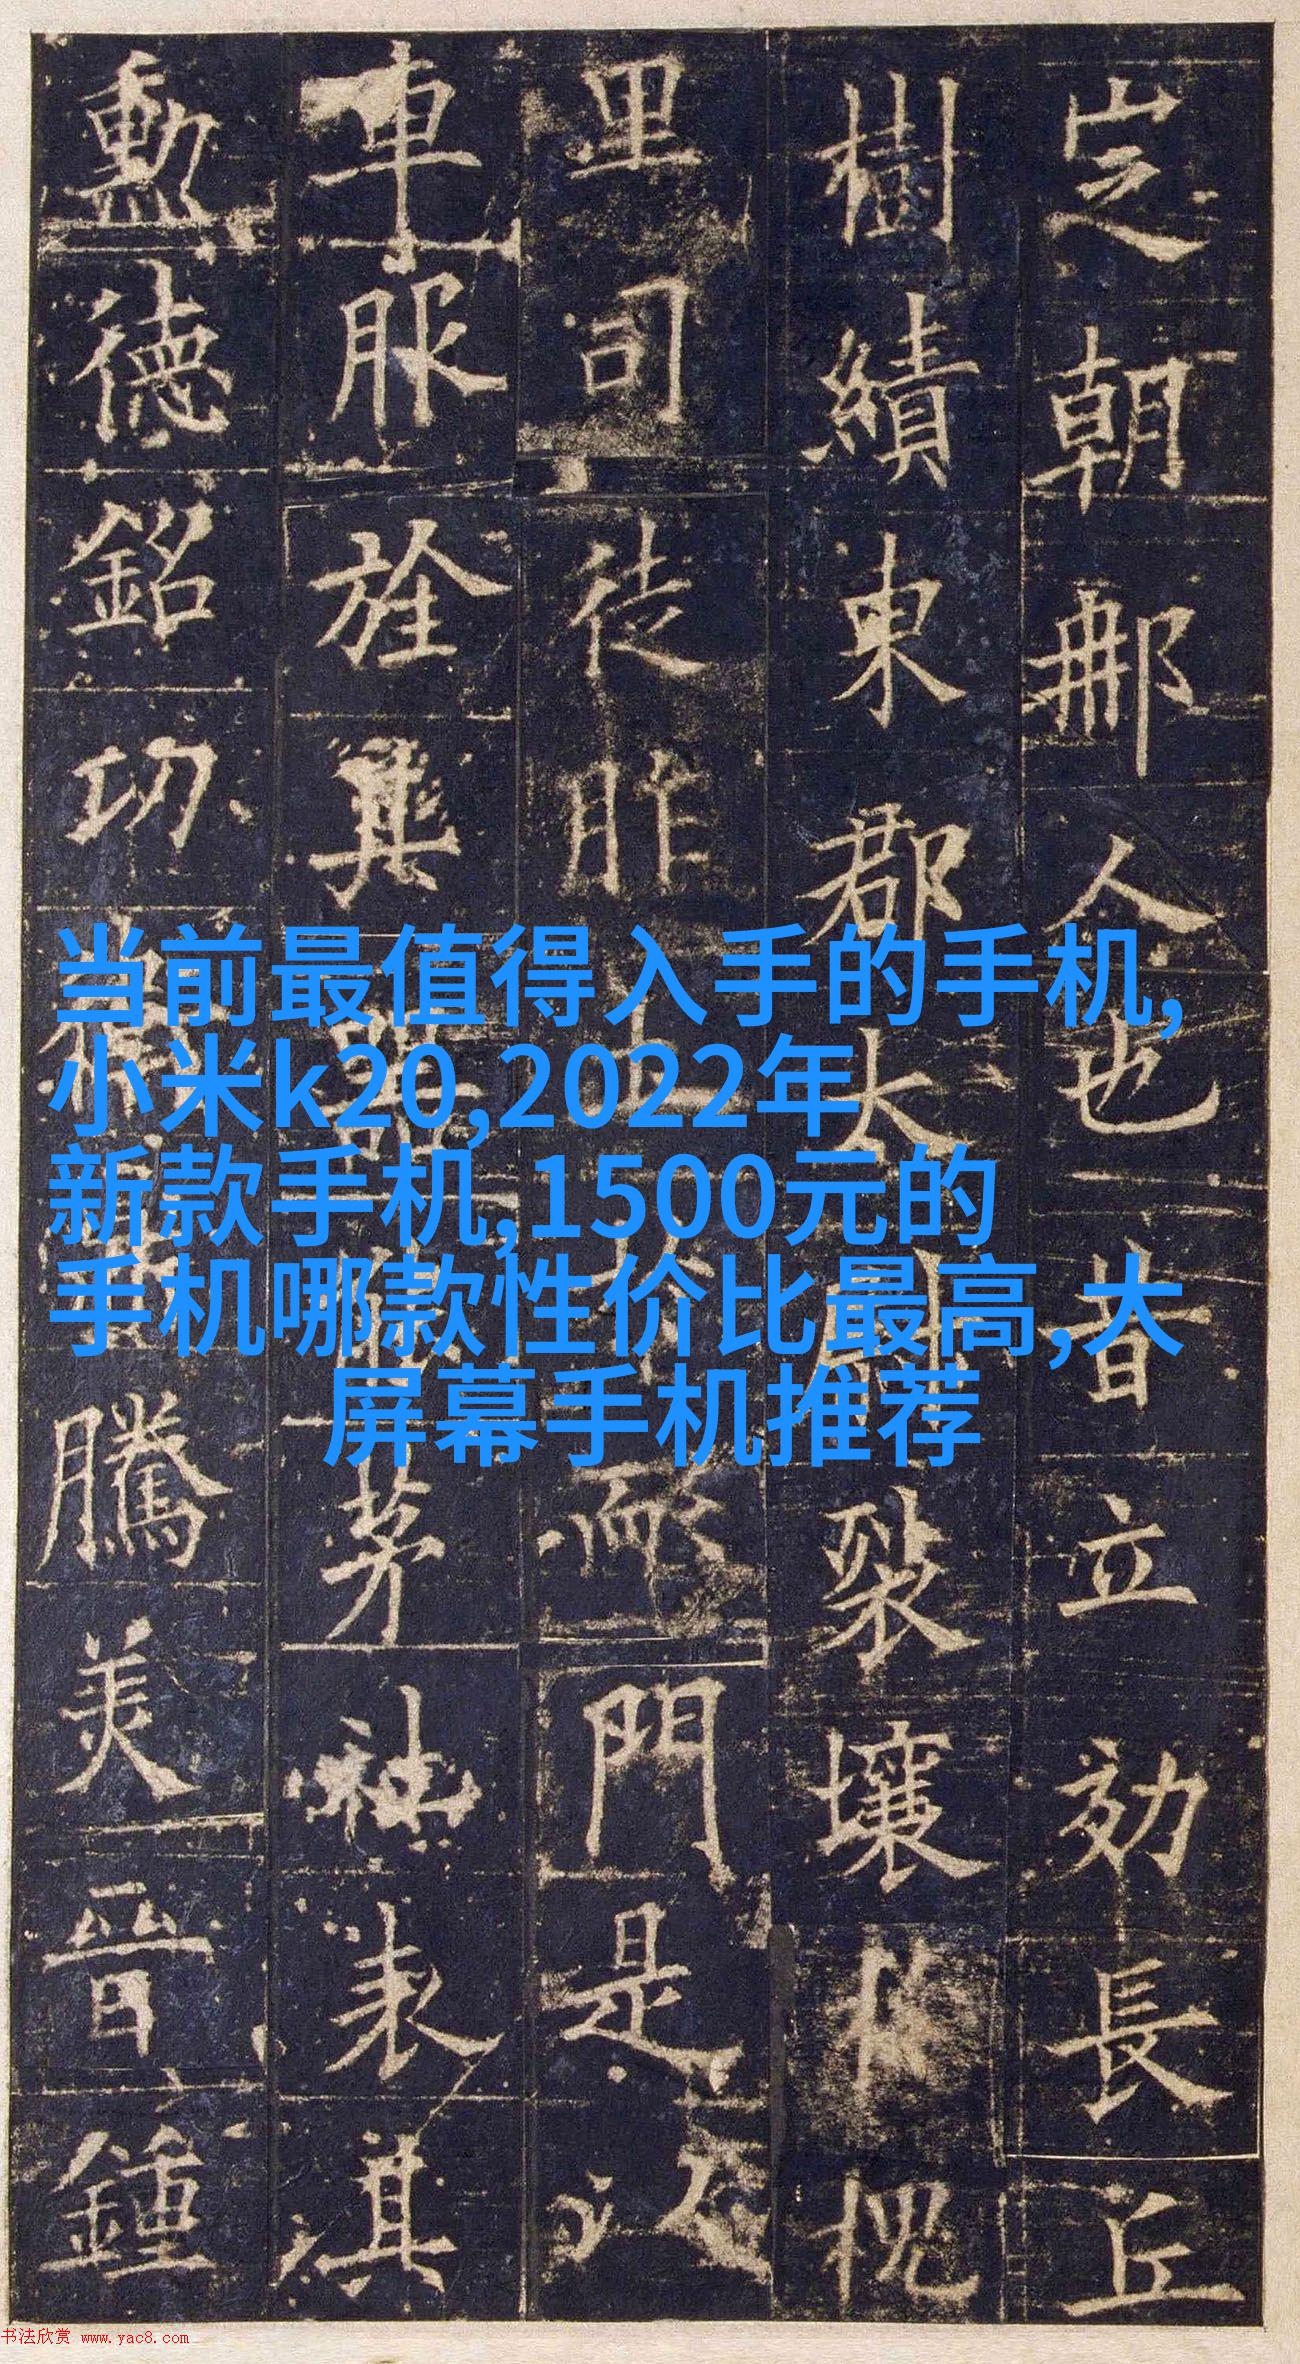 定朝那人也昔立効長丘
樹績東郡太尉裂壤於槐
里司徒胙土於耏門是以
車服旌其器能茅社表其
勳德銘功衛鼎騰美晉鍾
当前最值得入手的手机,
小米k20,2022年
新款手机,1500元的
手机哪款性价比最高,大
屏幕手机推荐
书法欣赏 www.yac8.com